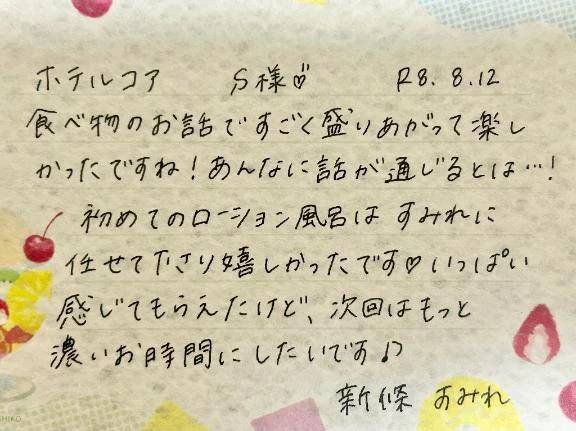 ホテルコア S様♡ R8.8.12
食べ物のお話ですごく盛りあがって楽し
かったですね!あんなに話が通じるとは…!
初めてのローション風呂は すみれに
任せて下さり嬉しかったです♡いっぱい
感じてもらえたけど、次回はもっと
濃いお時間にしたいです♪
新條 すみれ
SHIKO